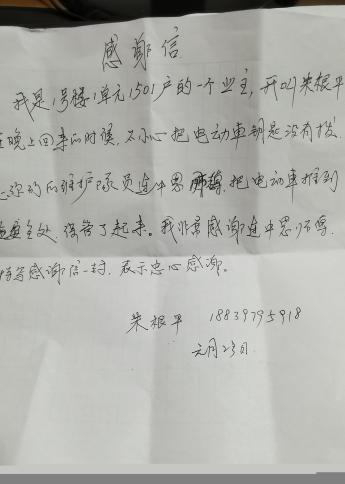 感谢信
我是1号楼1单元1501户的一个业主,我叫朱根平
晚上回来的时候,不小心把电动车钥匙没有拔
你们的维护队员连中恩师傅,把电动车推到
处,保管了起来。我非常感谢连中恩师傅.
特写感谢信一封,表示忠心感谢。
朱根平 18839795918
元月23日